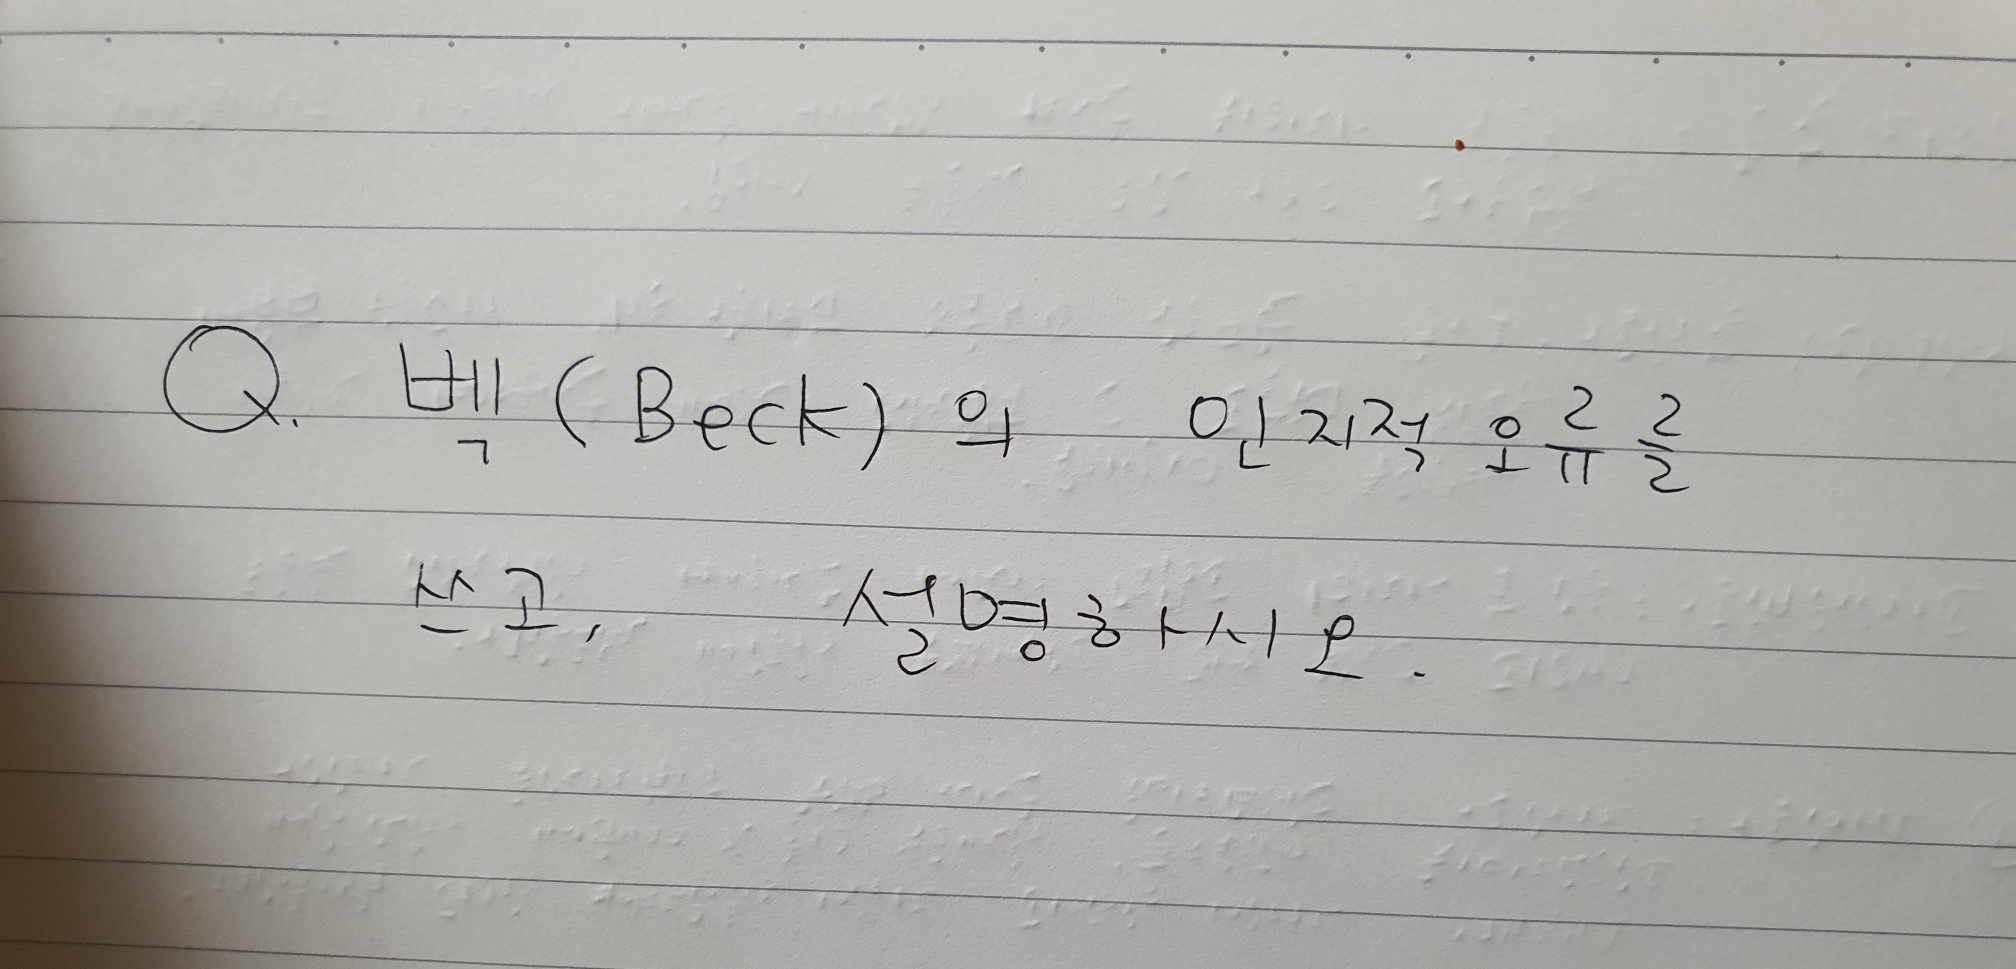 Q. 벡(Beck)의 인지적 오류를
쓰고, 설명하시오.